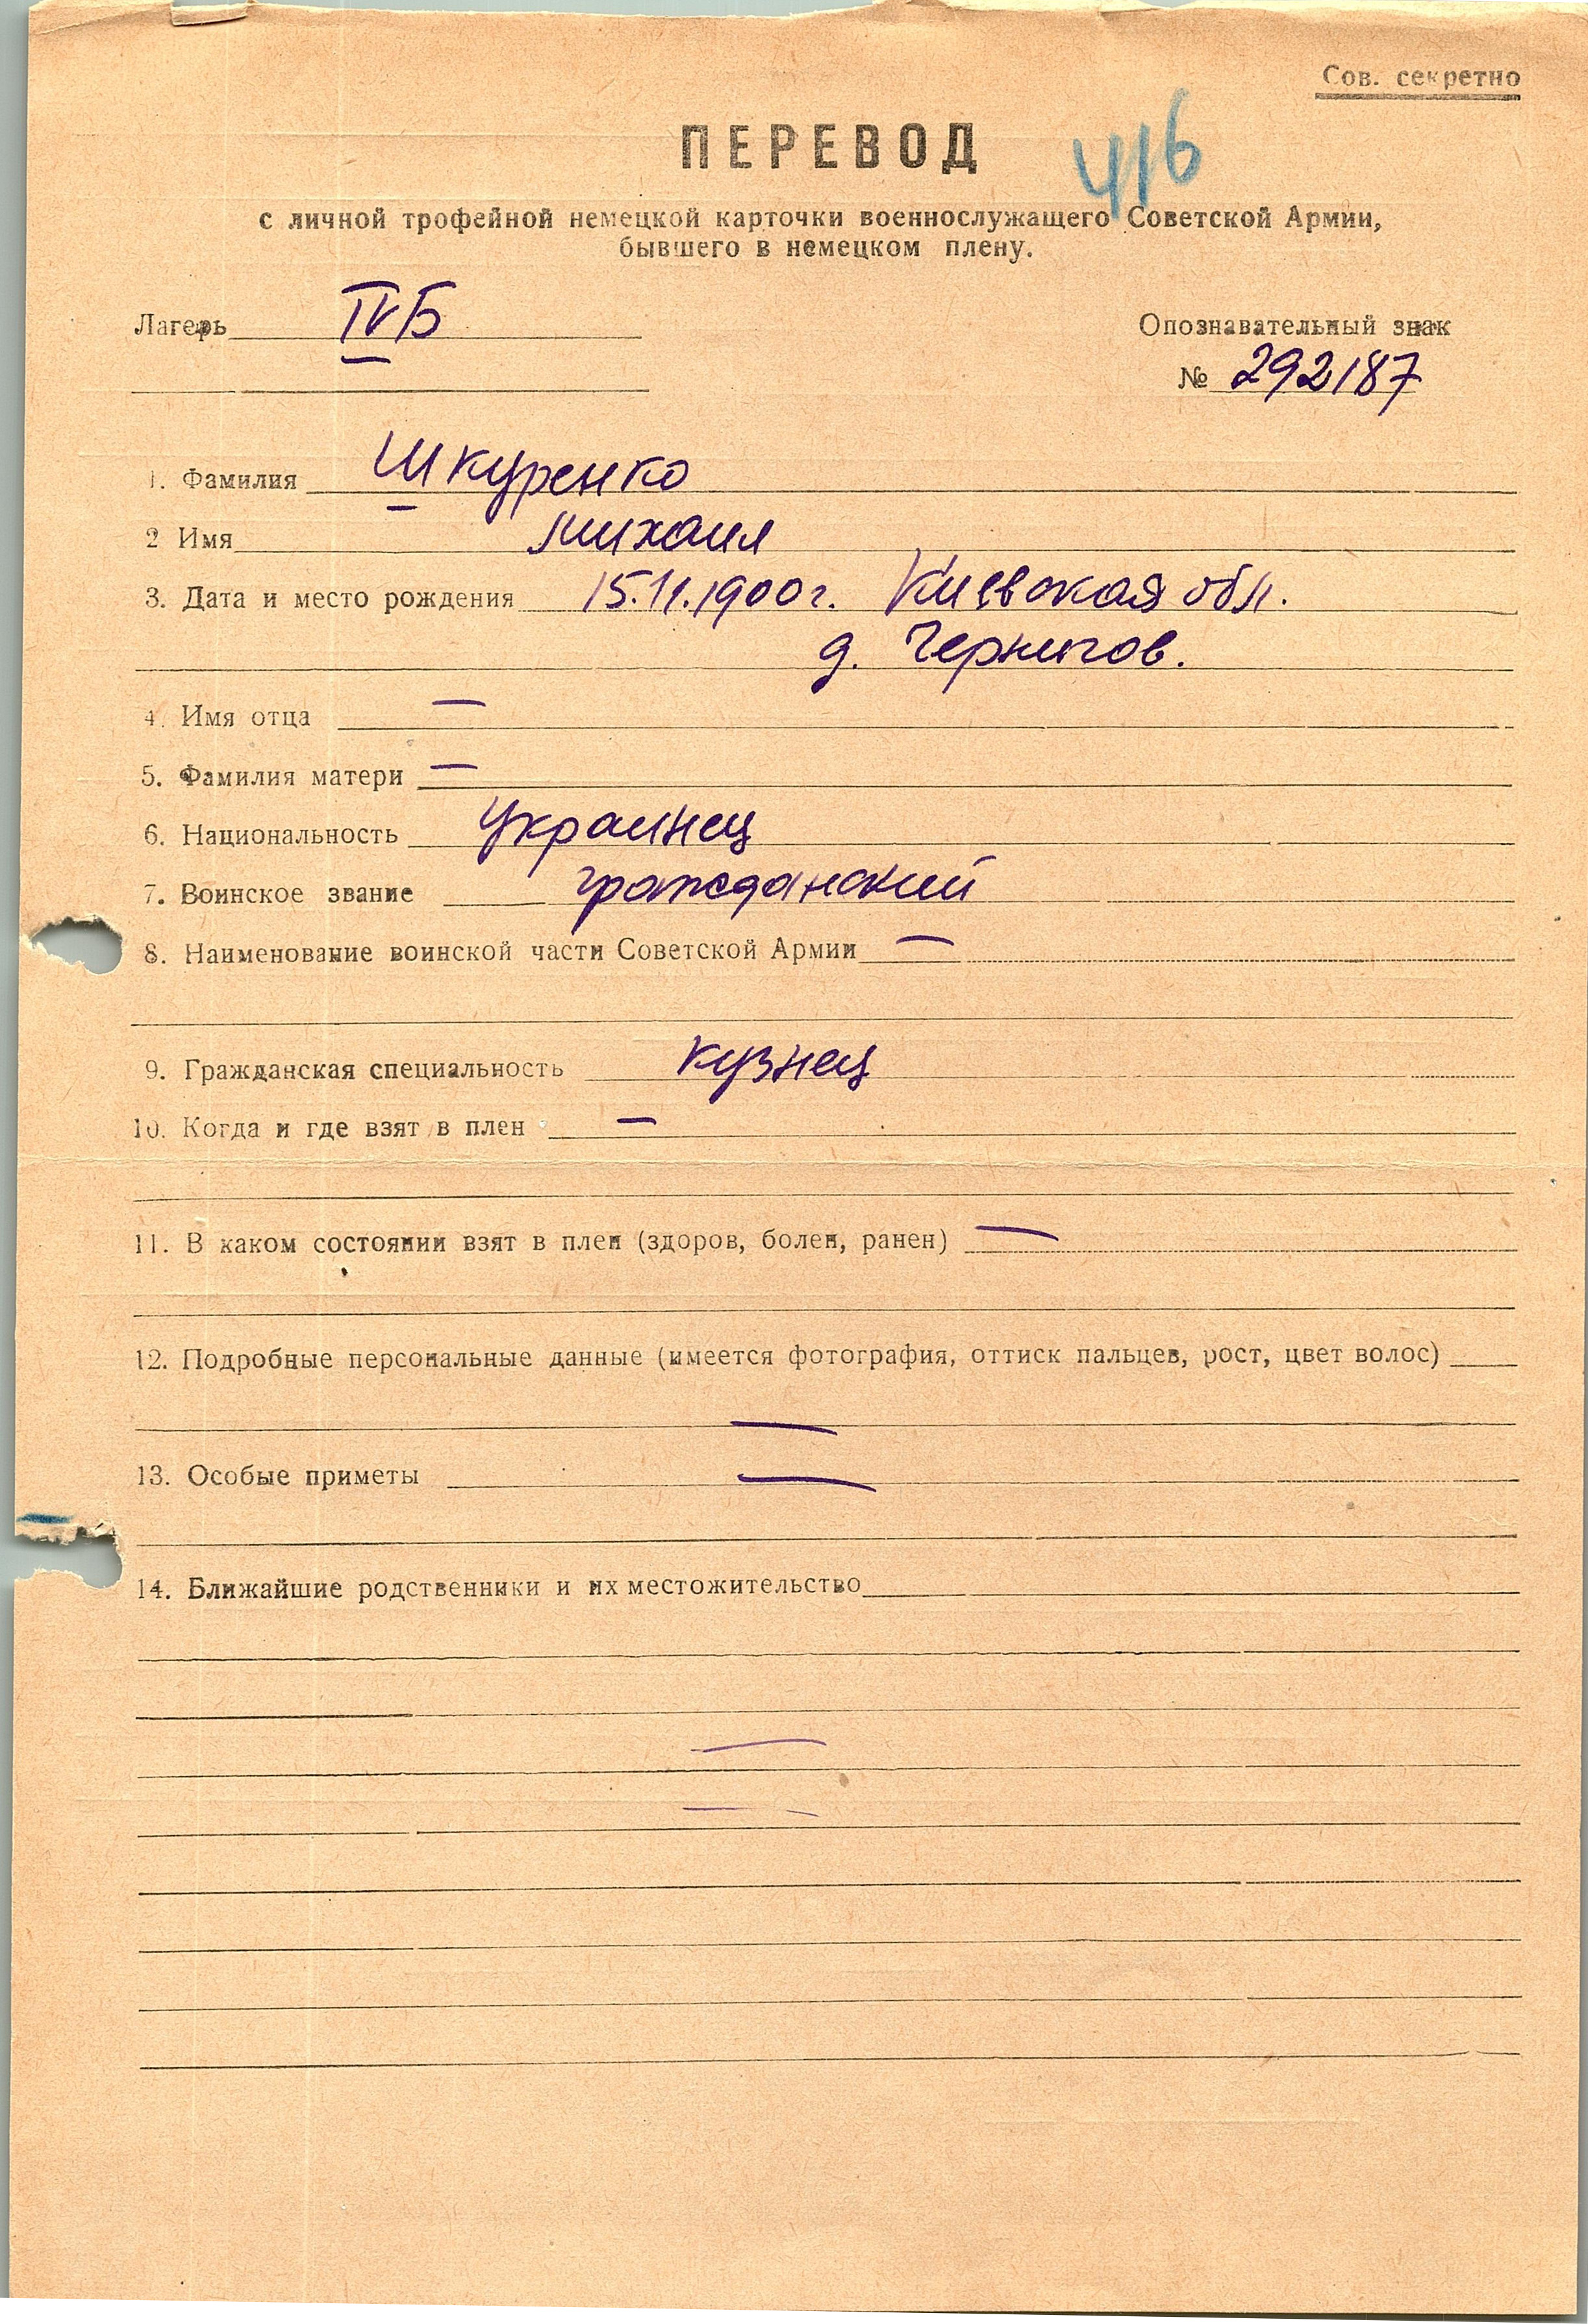 Сов. секретно
ПЕРЕВОД
416
с личной трофейной немецкой карточки военнослужащего Советской Армии,
бывшего в немецком плену.
Лагерь IVБ
Опознавательный знак
№ 292187
1. Фамилия Шкуренко
2 Имя Михаил
3. Дата и место рождения 15.11.1900г. Киевская обл.
д. Чернигов.
4. Имя отца —
5. Фамилия матери —
6. Национальность украинец
7. Воинское звание гражданский
8. Наименование воинской части Советской Армии —
9. Гражданская специальность кузнец
10. Когда и где взят в плен —
11. В каком состоянии взят в плен (здоров, болен, ранен) —
12. Подробные персональные данные (имеется фотография, оттиск пальцев, рост, цвет волос)
—
13. Особые приметы —
14. Ближайшие родственники и их местожительство
—
—